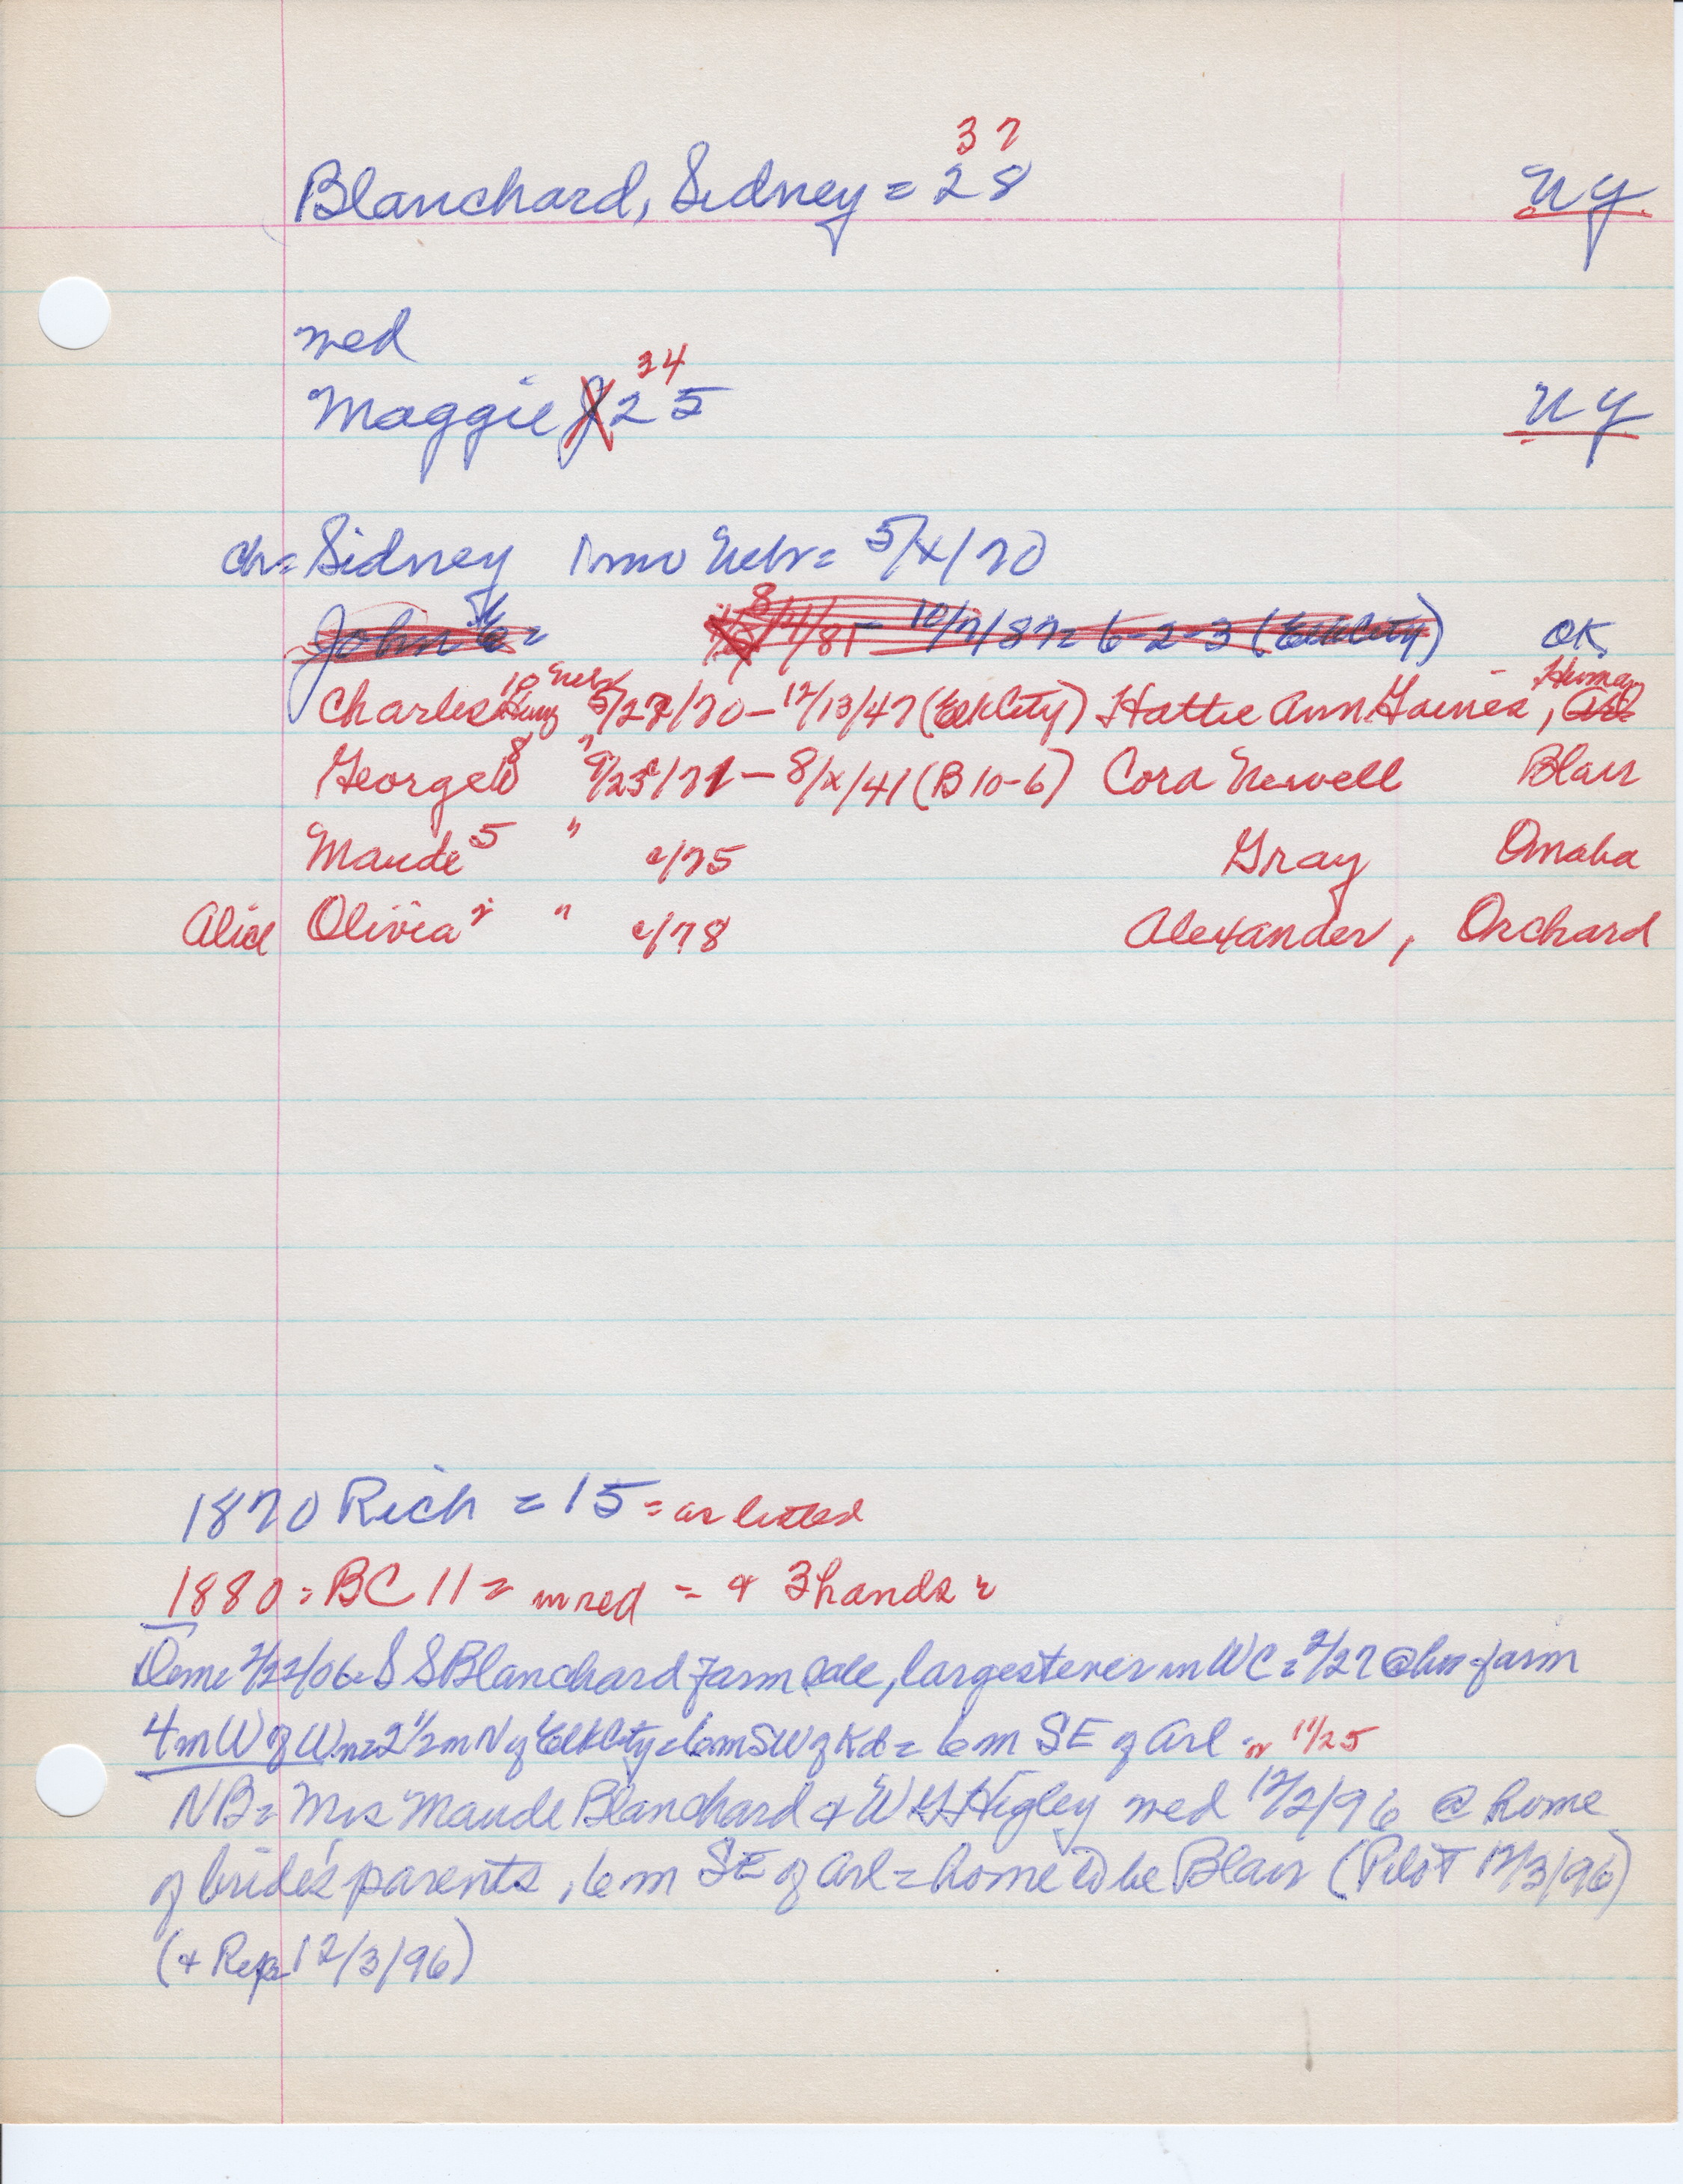 37
Blanchard, Sidney = 28 NY
wed
34
Maggie J 25 NY
ch = Sidney 1 mo Nebr = 5/x/70
John 8/4/81 - 10/7/87 = 6-2-3 (Elk City) OK
Charles Henry 10 Nebr 5/27/70 - 12/13/47 (Elk City) Hattie Ann Gaines, Herman
George W 8 " 9/23/71 - 8/x/41 (B 10-6) Cora Newell Blair
Maude 5 " c/75 Gray Omaha
Alice Olivia 2 " c/78 Alexander, Orchard
1870 Rich = 15 = as listed
1880 = BC 11 = in red = + 3 hands =
Deme 2/22/06 = S S Blanchard farm sale, largest ever in WC = 2/27 @ his farm
4 m W of Wn = 2 1/2 m N of Elk City = 6 m SW of Kd = 6 m SE of Arl = 11/25
NB = Mrs Maude Blanchard & W G Higley wed 12/2/96 @ home
of bride's parents, 6 m SE of Arl = home to be Blair (Pilot 12/3/96)
(+ Rep 12/3/96)